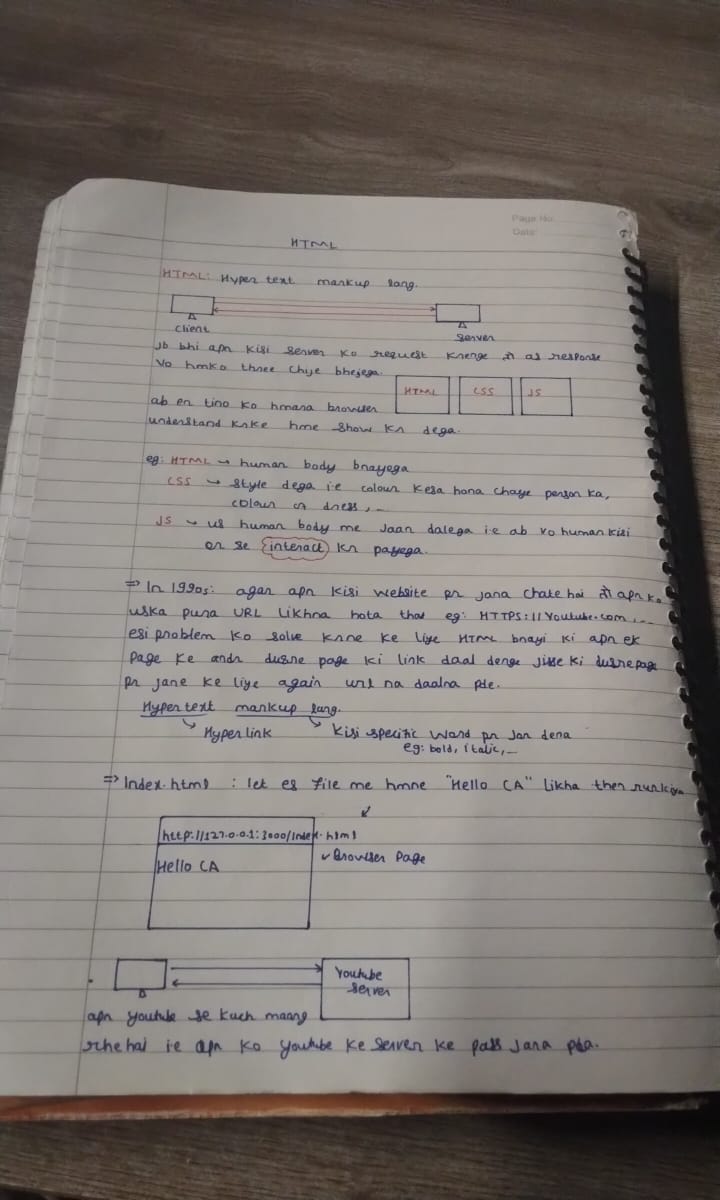 Page No.
Date
HTML
HTML: Hyper text markup lang.
Client
Server
Jb bhi apn kisi server ko request krenge तो as response
Vo hmko three chije bhejega.
HTML CSS JS
ab en tino ko hmara browser
understand krke hme show kr dega.
eg: HTML → human body bnayega
CSS → style dega i.e colour kesa hona chaye person ka,
colour of dress, ...
JS → us human body me Jaan dalega i.e ab vo human kisi
or se interact kr payega.
⇒ In 1990s: agar apn kisi website pr jana chate hai तो apn ko
uska pura URL likhna hota tha eg: HTTPS://Youtube.com ...
esi problem ko solve krne ke liye HTML bnayi ki apn ek
Page ke andr dusre page ki link daal denge jisse ki dusre page
pr jane ke liye again url na daalna pde.
Hyper text markup lang.
Hyper link
Kisi specific word pr Jan dena
eg: bold, italic, ...
⇒ Index.html : let es file me hmne "Hello CA" likha then run kiya
http://127.0.0.1:3000/Index.html
Hello CA
Browser Page
Youtube
server
apn youtube se kuch maang
rhe hai ie apn ko youtube ke server ke pass jana pda.